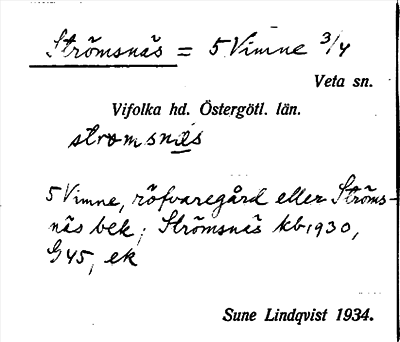 Strömsnäs = 5 Vimne 3/4
Veta sn.
Vifolka hd. Östergötl. län.
stromsnäs
5 Vimne, röfvaregård eller Ströms-
näs bek; Strömsnäs kb 1930,
G 45, ek
Sune Lindqvist 1934.